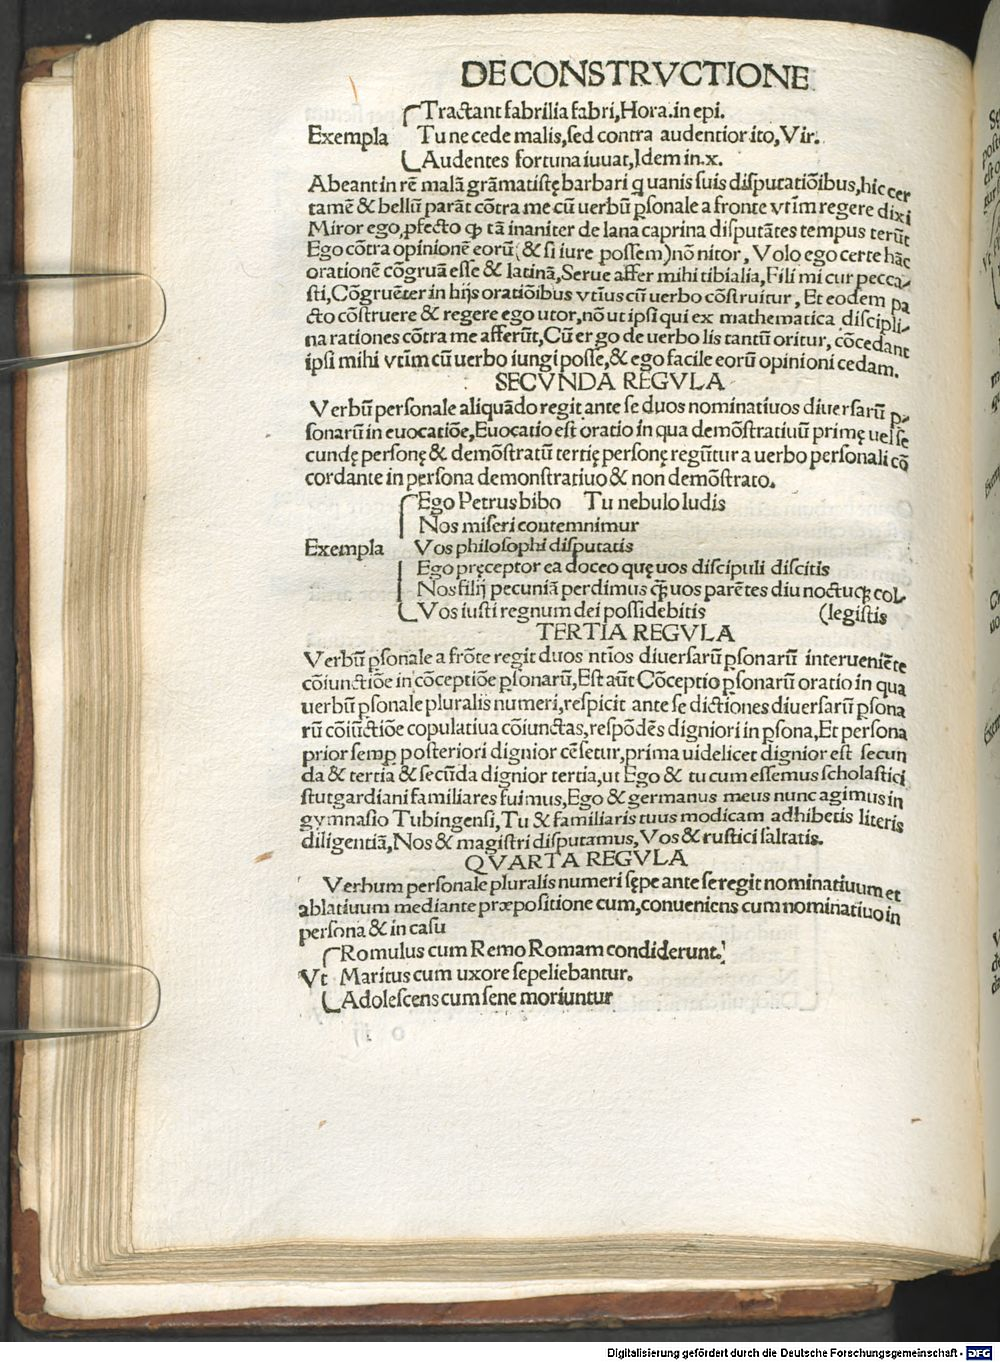 DE CONSTRVCTIONE
Tractant fabrilia fabri, Hora. in epi.
Exempla Tu ne cede malis, sed contra audentior ito, Vir.
Audentes fortuna iuuat, Idem in .x.
Abeant in rē malā grāmatistę barbari q̃uanis suis disputatiōibus, hic cer
tamē & bellū parāt cōtra me cū uerbū ꝑsonale a fronte vtīm regere dixi
Miror ego, ꝓfecto ꝙ tā inaniter de lana caprina disputātes tempus terūt
Ego cōtra opinionē eorū (& si iure possem) nō nitor, Volo ego certe hāc
orationē cōgruā esse & latinā, Serue affer mihi tibialia, Fili mi cur pecca-
sti, Cōgruēter in hijs oratiōibus vtīus cū uerbo cōstruitur, Et eodem pa
cto cōstruere & regere ego utor, nō ut ipsi qui ex mathematica discipli-
na rationes cōtra me afferūt, Cū ergo de uerbo lis tantū oritur, cōcedant
ipsi mihi vtīm cū uerbo iungi posse, & ego facile eorū opinioni cedam.
SECVNDA REGVLA
Verbū personale aliquādo regit ante se duos nominatiuos diuersarū ꝑ-
sonarū in euocatiōe, Euocatio est oratio in qua demōstratiuū primę uel se
cundę personę & demōstratū tertię personę regūtur a uerbo personali cō
cordante in persona demonstratiuo & non demōstrato.
Ego Petrus bibo Tu nebulo ludis
Nos miseri contemnimur
Exempla Vos philosophi disputatis
Ego pręceptor ea doceo quę uos discipuli discitis
Nos filij pecuniā perdimus q̃ʒ uos parētes diu noctuqʒ col-
Vos iusti regnum dei possidebitis (legistis
TERTIA REGVLA
Verbū ꝑsonale a frōte regit duos ntīos diuersarū ꝑsonarū interueniēte
cōiunctiōe in cōceptiōe ꝑsonarū, Est aūt Cōceptio ꝑsonarū oratio in qua
uerbū ꝑsonale pluralis numeri, respicit ante se dictiones diuersarū ꝑsona
rū cōiūctiōe copulatiua cōiunctas, respōdēs digniori in ꝑsona, Et persona
prior semꝑ posteriori dignior cēsetur, prima uidelicet dignior est secun
da & tertia & secūda dignior tertia, ut Ego & tu cum essemus scholastici
stutgardiani familiares fuimus, Ego & germanus meus nunc agimus in
gymnasio Tubingensi, Tu & familiaris tuus modicam adhibetis literis
diligentiā, Nos & magistri disputamus, Vos & rustici saltatis.
QVARTA REGVLA
Verbum personale pluralis numeri sępe ante se regit nominatiuum et
ablatiuum mediante præpositione cum, conueniens cum nominatiuo in
persona & in casu
Romulus cum Remo Romam condiderunt.
Vt Maritus cum uxore sepeliebantur.
Adolescens cum sene moriuntur
Digitalisierung gefördert durch die Deutsche Forschungsgemeinschaft - DFG